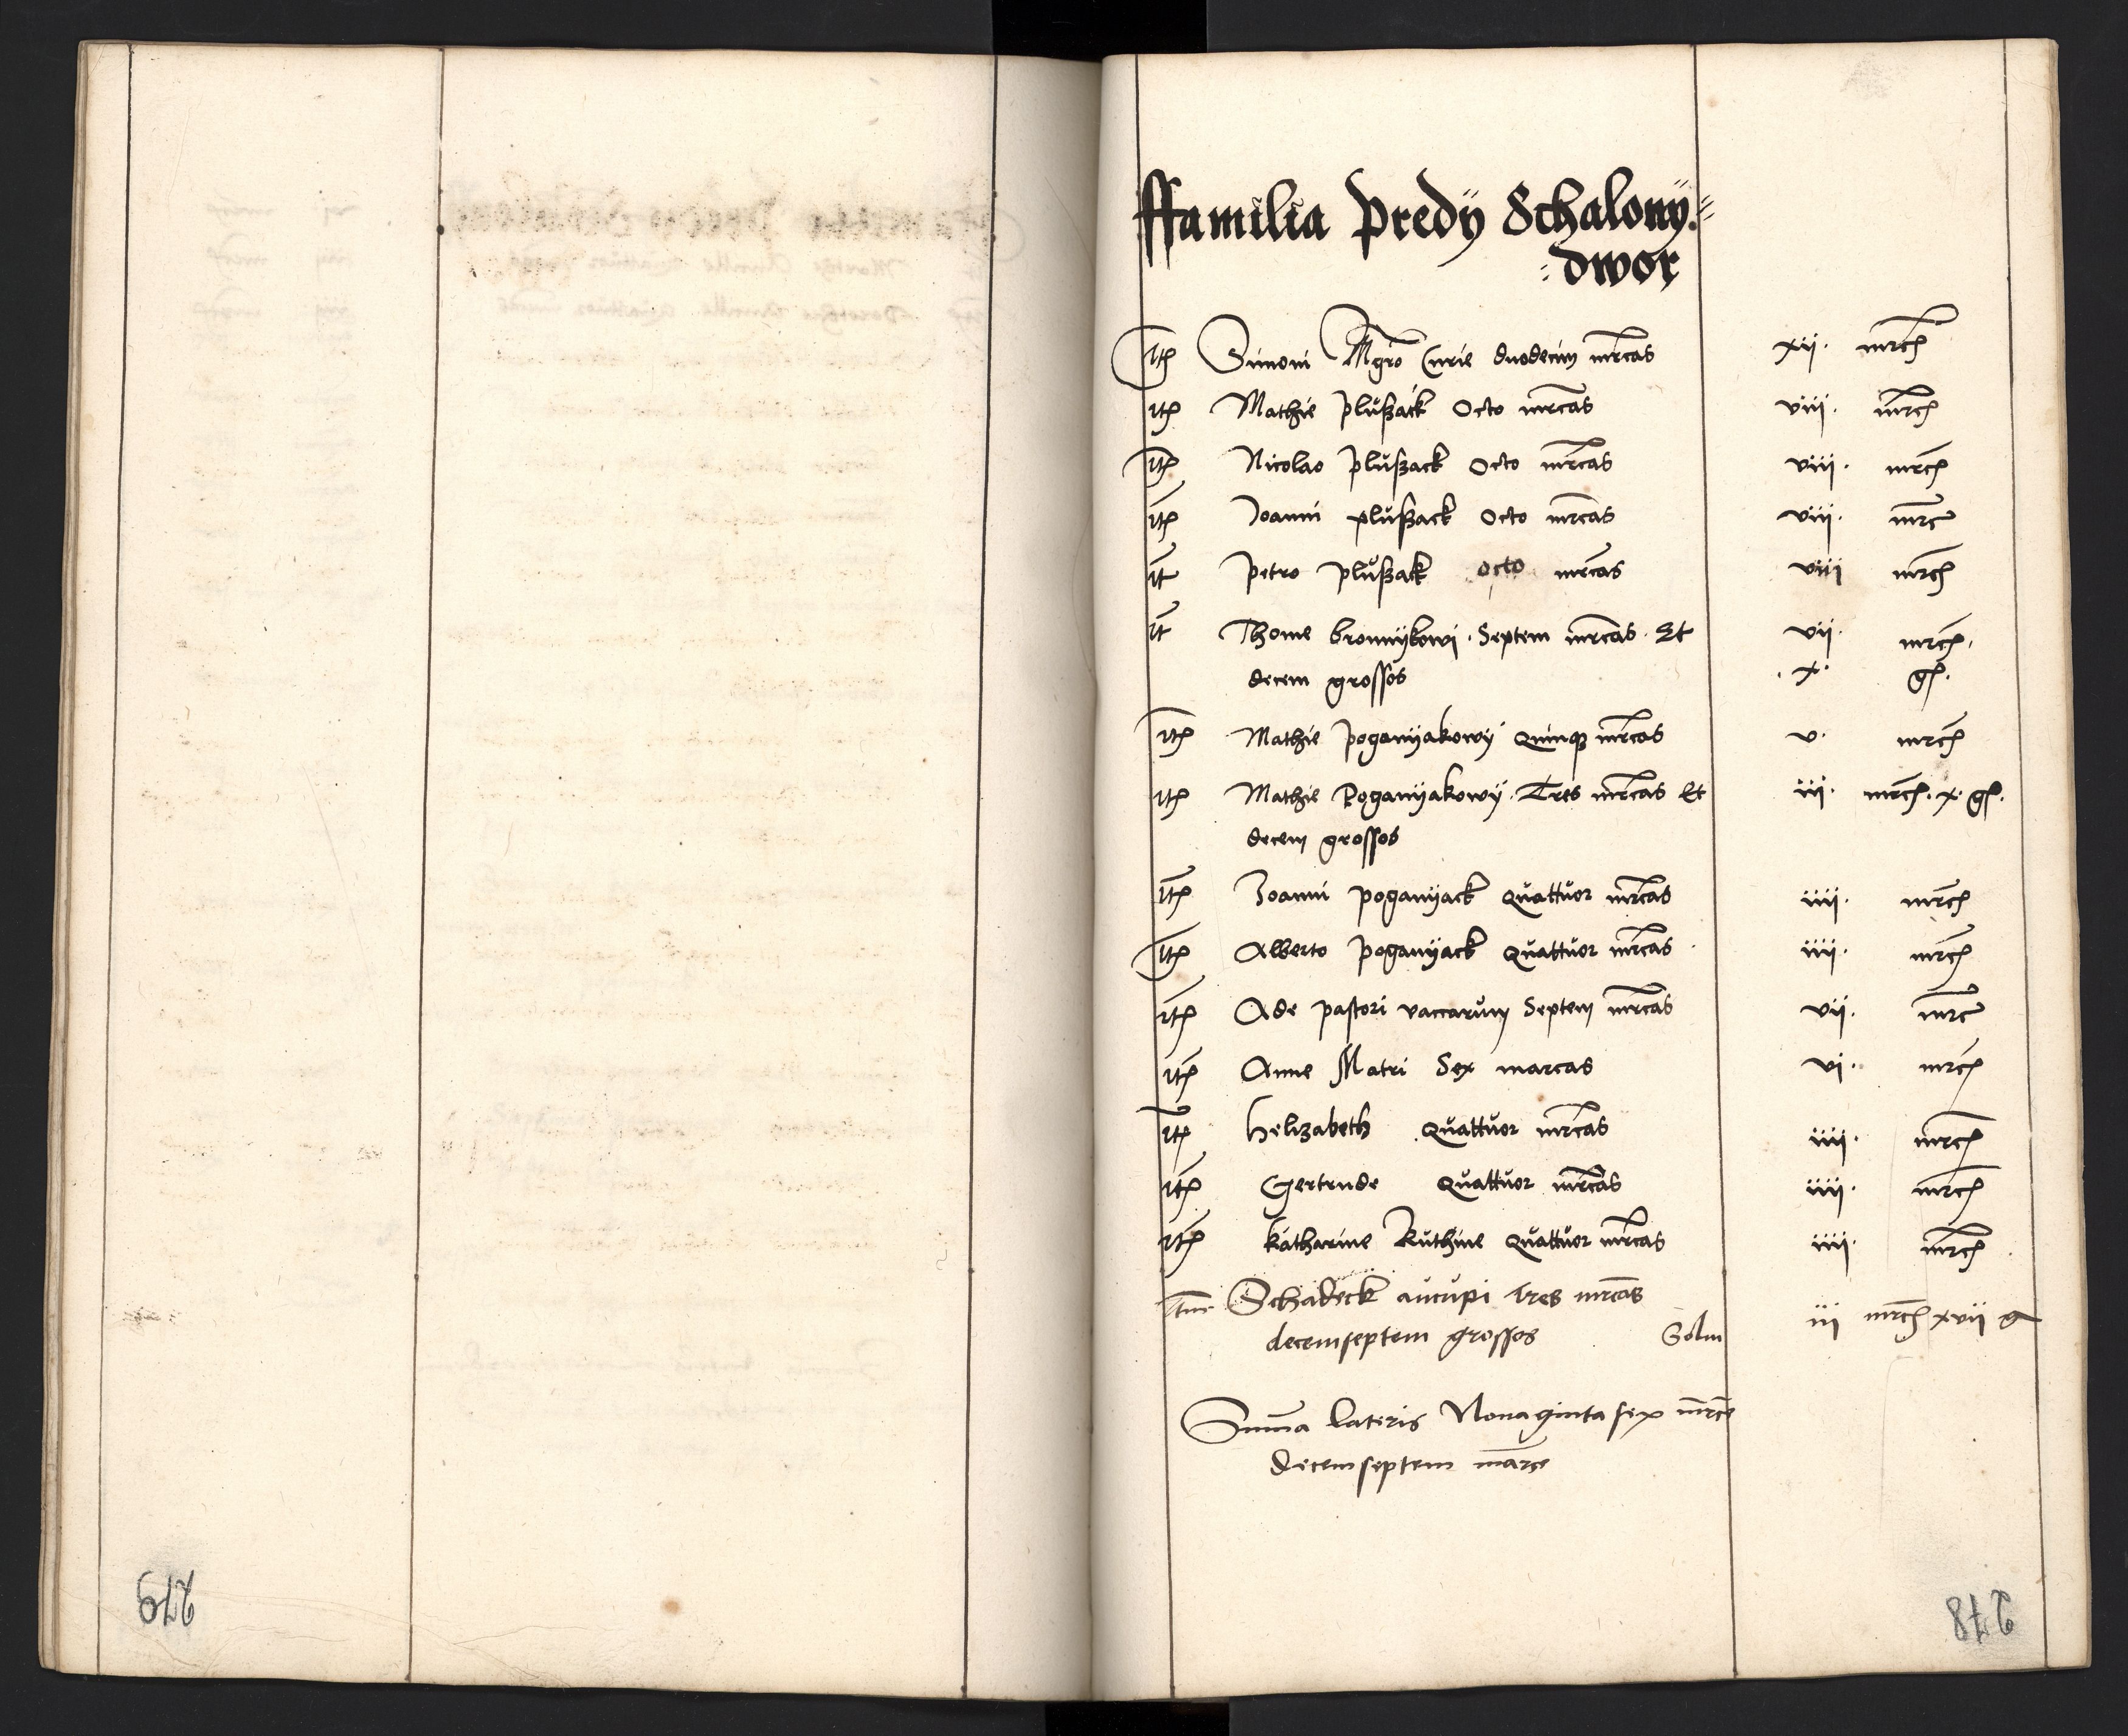 ffamilia predÿ Schalonÿ=
=dwor
itē Simoni Mgro Curie duodecim mrcas xii. mrcē
itē Mathie plusßack Octo mrcas viii. mrcē
itē Nicolao plusßack Octo mrcas viii. mrcē
itē Joanni plusßack Octo mrcas viii. mrc
it petro plusßak octo mrcas viii mrcē
it Thome bronnÿkowi . Septem mrcas . Et vii. mrcē.
decem grossos .x. gſ.
itē Mathie poganÿakowÿ quinqȝ mrcas v. mrcē
itē Mathie Poganÿakowÿ . Tres mrcas Et iii. mrcē . x. gſ.
decem grossos
itē Joanni poganÿack quattuor mrcas iiii. mrcē
itē Alberto poganÿack quattuor mrcas . iiii. mrcē
itē Ade pastori vaccarum Septem mrcas vii. mrc
itē Anne Matri Sex marcas vi. mrcē
itē helizabeth quattuor mrcas iiii. mrcē
itē Gertrude quattuor mrcas iiii. mrcē
itē katharine Ruthine quattuor mrcas iiii. mrcē
Schadeck aucupi tres mrcas
decemseptem grossos Solm iii mrcē xvii g
Suma lateris Nonaginta sex mrce
decemseptem marce
279
278